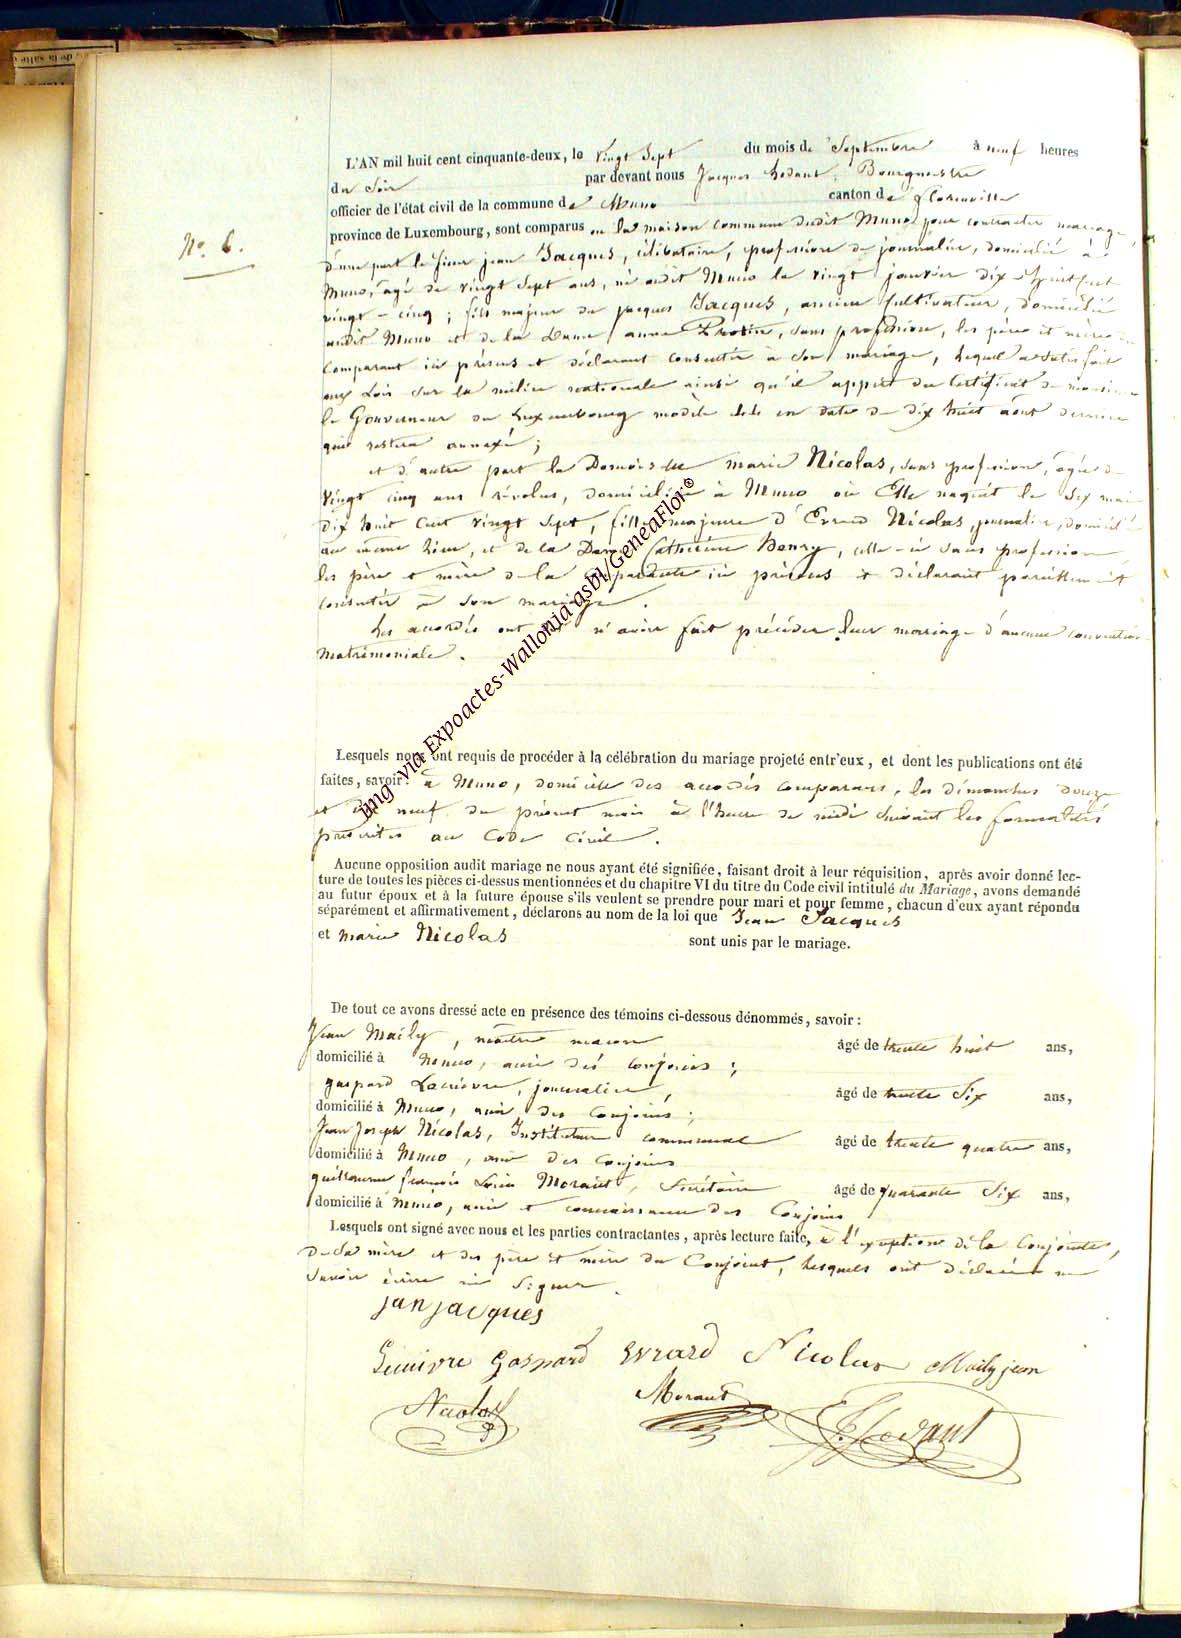 L'AN mil huit cent cinquante-deux, le vingt sept du mois de Septembre à neuf heures
du soir par devant nous Jacques Hodant, Bourgmestre
officier de l'état civil de la commune de Muno canton de Florenville
province de Luxembourg, sont comparus en la maison commune dudit Muno pour contracter mariage,
N°. 6.
d'une part le sieur jean Jacques, célibataire, profession de journalier, domicilié à
Muno, âgé de vingt sept ans, né audit Muno le vingt janvier dix huit cent
vingt-cinq; fils majeur de jacques Jacques, ancien cultivateur, domicilié
audit Muno et de la Dame anne, sans profession, les père et mère
comparant ici présens et déclarant consentir à son mariage, lequel a satisfait
aux Lois sur la milice nationale ainsi qu'il appert du Certificat de monsieur
le Gouverneur du Luxembourg modèle en date du dix huit août dernier
qui restera annexé;
et d'autre part la Demoiselle marie Nicolas, sans profession, âgée de
vingt cinq ans révolus, domiciliée à Muno où Elle naquit le six mai
dix huit Cent vingt sept, fille majeure d'Evrard Nicolas, journalier, domicilié
au même Lieu, et de la Dame Catherine Henry, celle-ci sans profession
les père et mère de la comparante ici présens et déclarant pareillement
consentir à son mariage.
Les accordés ont dit n'avoir fait précéder leur mariage d'aucune convention
matrimoniale.
Lesquels nous ont requis de procéder à la célébration du mariage projeté entr'eux, et dont les publications ont été
faites, savoir: à Muno, domicile des accordés comparans, les dimanches douze
et dix neuf du présent mois à l'heure de midi suivant les formalités
prescrites au Code Civil.
Aucune opposition audit mariage ne nous ayant été signifiée, faisant droit à leur réquisition, après avoir donné lec-
ture de toutes les pièces ci-dessus mentionnées et du chapitre VI du titre du Code civil intitulé du Mariage, avons demandé
au futur époux et à la future épouse s'ils veulent se prendre pour mari et pour femme, chacun d'eux ayant répondu
séparément et affirmativement, déclarons au nom de la loi que Jean Jacques
et marie Nicolas sont unis par le mariage.
De tout ce avons dressé acte en présence des témoins ci-dessous dénommés, savoir:
Jean Maily, maître maçon âgé de trente huit ans,
domicilié à Muno, ami des conjoins;
gaspard Lacuivre, journalier, âgé de trente Six ans,
domicilié à Muno, ami des Conjoins;
Jean Joseph Nicolas, Instituteur communal âgé de trente quatre ans,
domicilié à Muno, ami des Conjoins
guillaume francois Louis Moraut, Secrétaire âgé de quarante Six ans,
domicilié à Muno, ami et connaissance des Conjoins
Lesquels ont signé avec nous et les parties contractantes, après lecture faite, à l'exception de la Conjointe,
de sa mère et des père et mère du Conjoint, lesquels ont déclaré ne
savoir écrire ni Signer.
jan jacques
Gaspard Evrard Nicolas Maily jean
Nicolas Moraut J. Hodant
Img via Expoactes-Wallonia asbl/GeneaFlor©